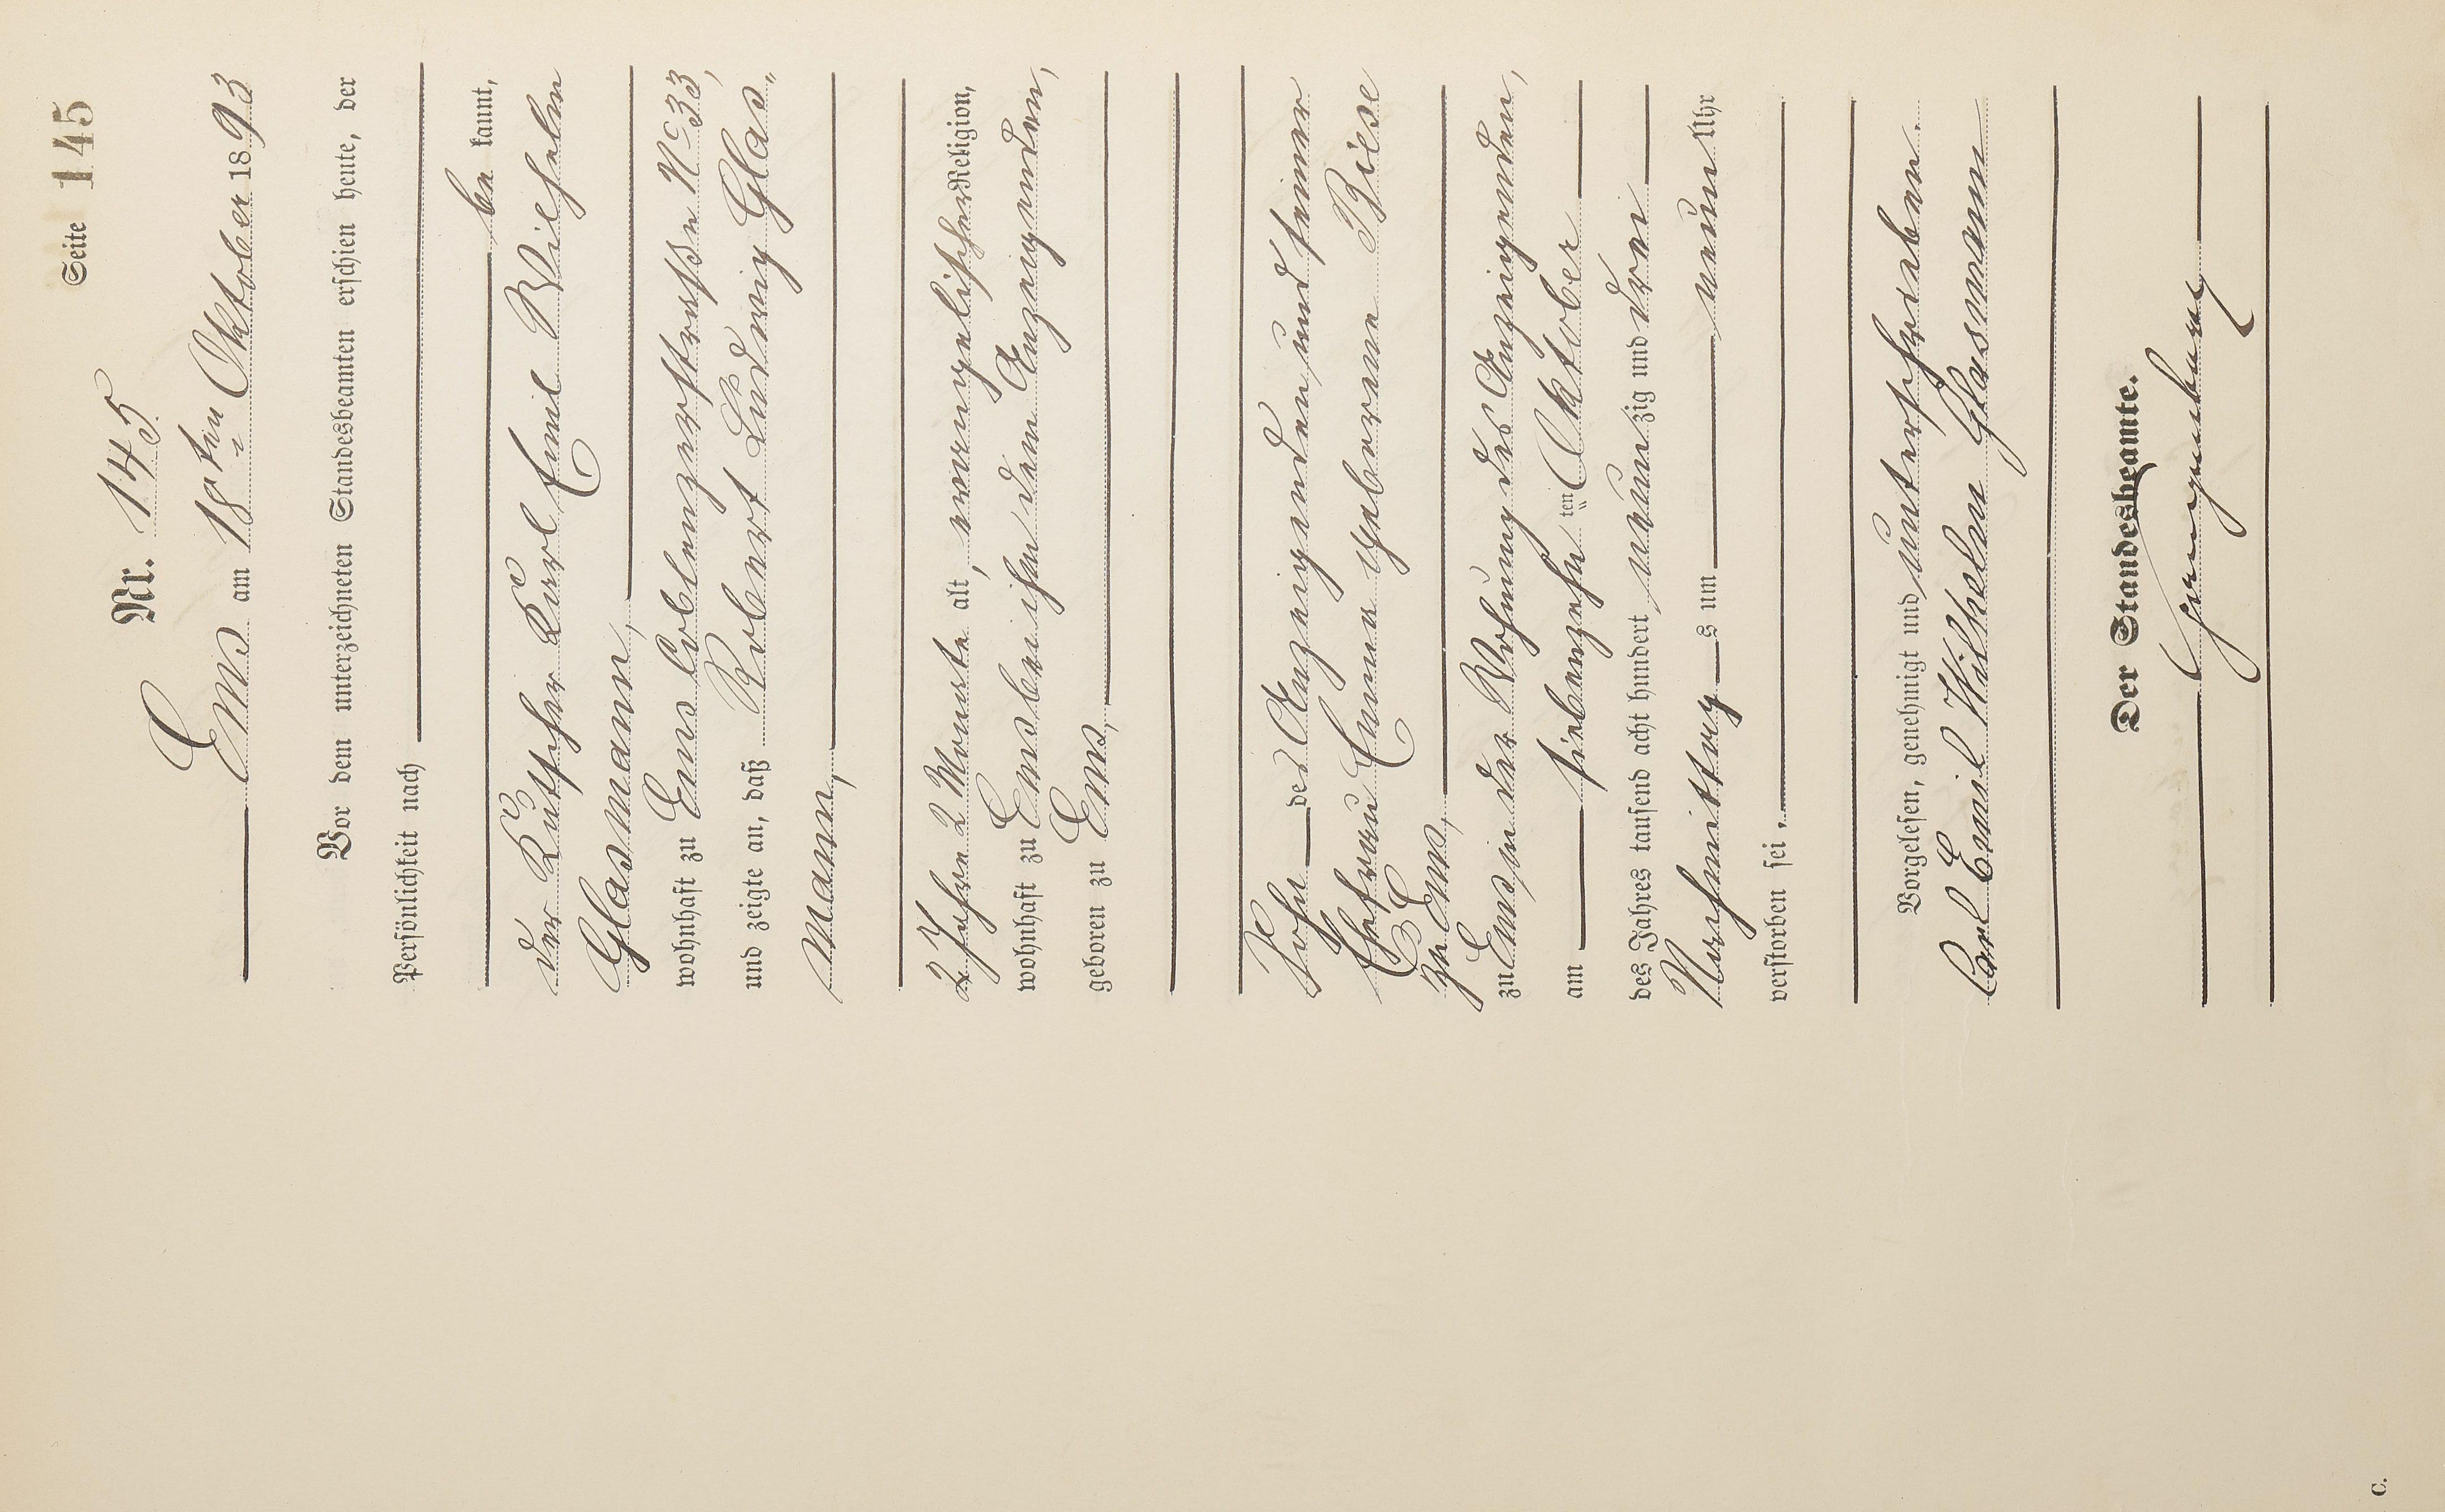 Seite 145
Nr. 145.
Ems am 18ten Oktober 1893
Vor dem unterzeichneten Standesbeamten erschien heute, der
Persönlichkeit nach
be kannt,
der Kutscher Karl Emil Wilhelm
Glasmann,
wohnhaft zu Ems Coblenzerstrasse No 33,
und zeigte an, daß Robert Ludwig Glas„
mann,
2 Jahre 2 Monate alt, evangelischer Religion,
wohnhaft zu Ems bei ihm dem Anzeigenden,
geboren zu Ems,
Sohn des Anzeigenden und seiner
Ehefrau Emma geborene Biese
zu Ems,
zu Ems in der Wohnung des Anzeigenden,
am siebenzehn ten Oktober
des Jahres tausend acht hundert neun zig und drei
Nachmittag s um neun Uhr
verstorben sei.
Vorgelesen, genehmigt und unterschrieben.
Carl Emil Wilhelm Glasmann
Der Standesbeamte.
C.